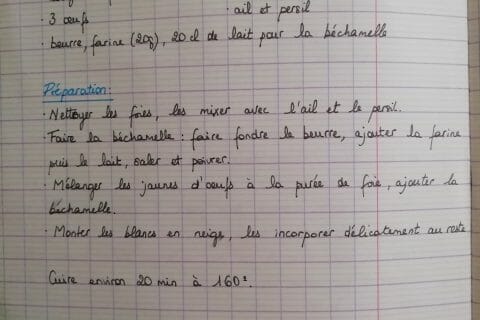 · 3 œufs · ail et persil
· beurre, farine (20g), 20 cl de lait pour la béchamelle
Préparation:
· Nettoyer les foies, les mixer avec l'ail et le persil.
· Faire la béchamelle : faire fondre le beurre, ajouter la farine
puis le lait, saler et poivrer.
· Mélanger les jaunes d'œufs à la purée de foie, ajouter la
béchamelle.
· Monter les blancs en neige, les incorporer délicatement au reste
Cuire environ 20 min à 160°.